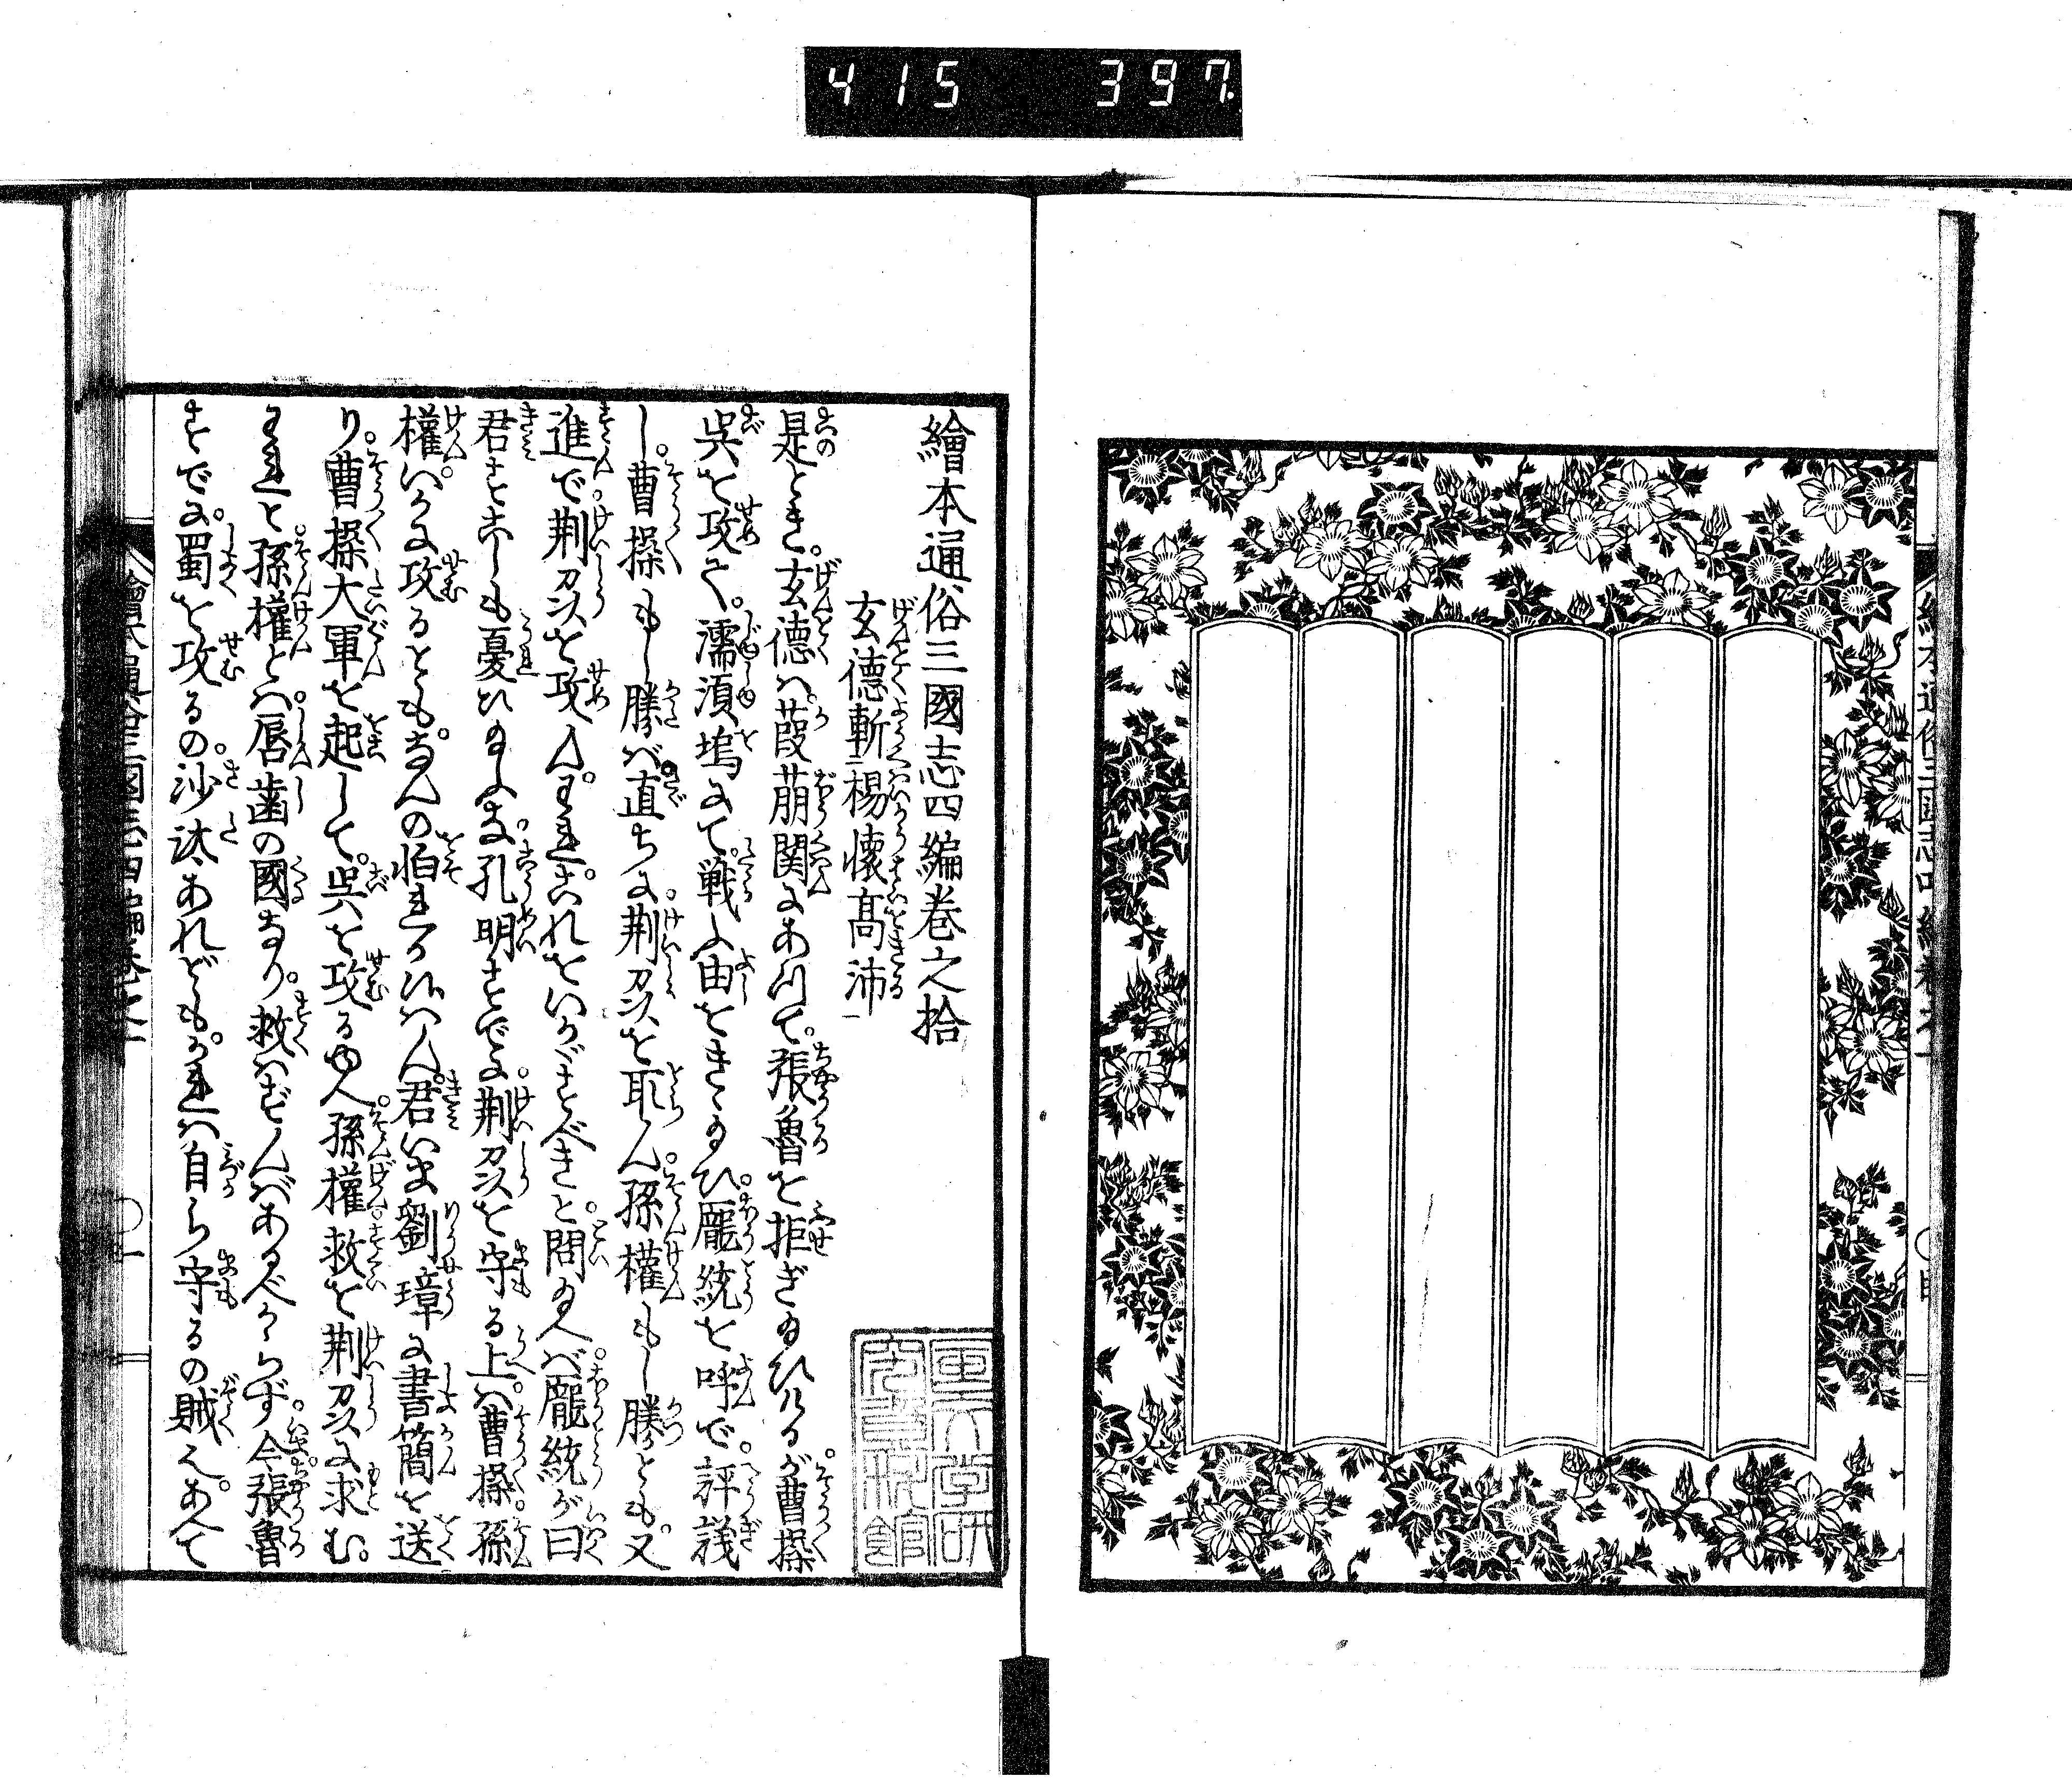 415 397
繪本通俗三國志四編卷之拾
玄德斬楊懷高沛
是とき玄德ハ葭萠関にあつて張魯を拒ぎ給ひけるが曹操
呉を攻て濡湏塢にて戦ふ由をきゝ給ひ龐統を呼で評議
し曹操もし勝バ直ちに荆刕を取ん孫權もし勝とも又
進で荆刕を攻んわれこれをいかゞすべきと問給へバ龐統が曰
君すこしも憂ひ給ふな孔明すでに荆刕を守る上ハ曹操孫
權いかに攻るともなんの怕れか候ハん君いま劉璋に書簡を送
り曹操大軍を起して呉を攻るゆへ孫權救を荆刕に求む
われと孫權とハ唇歯の國なり救ハずんバあるべからず今張魯
すでに蜀を攻るの沙汰あれどもかれハ自ら守るの賊にあへて